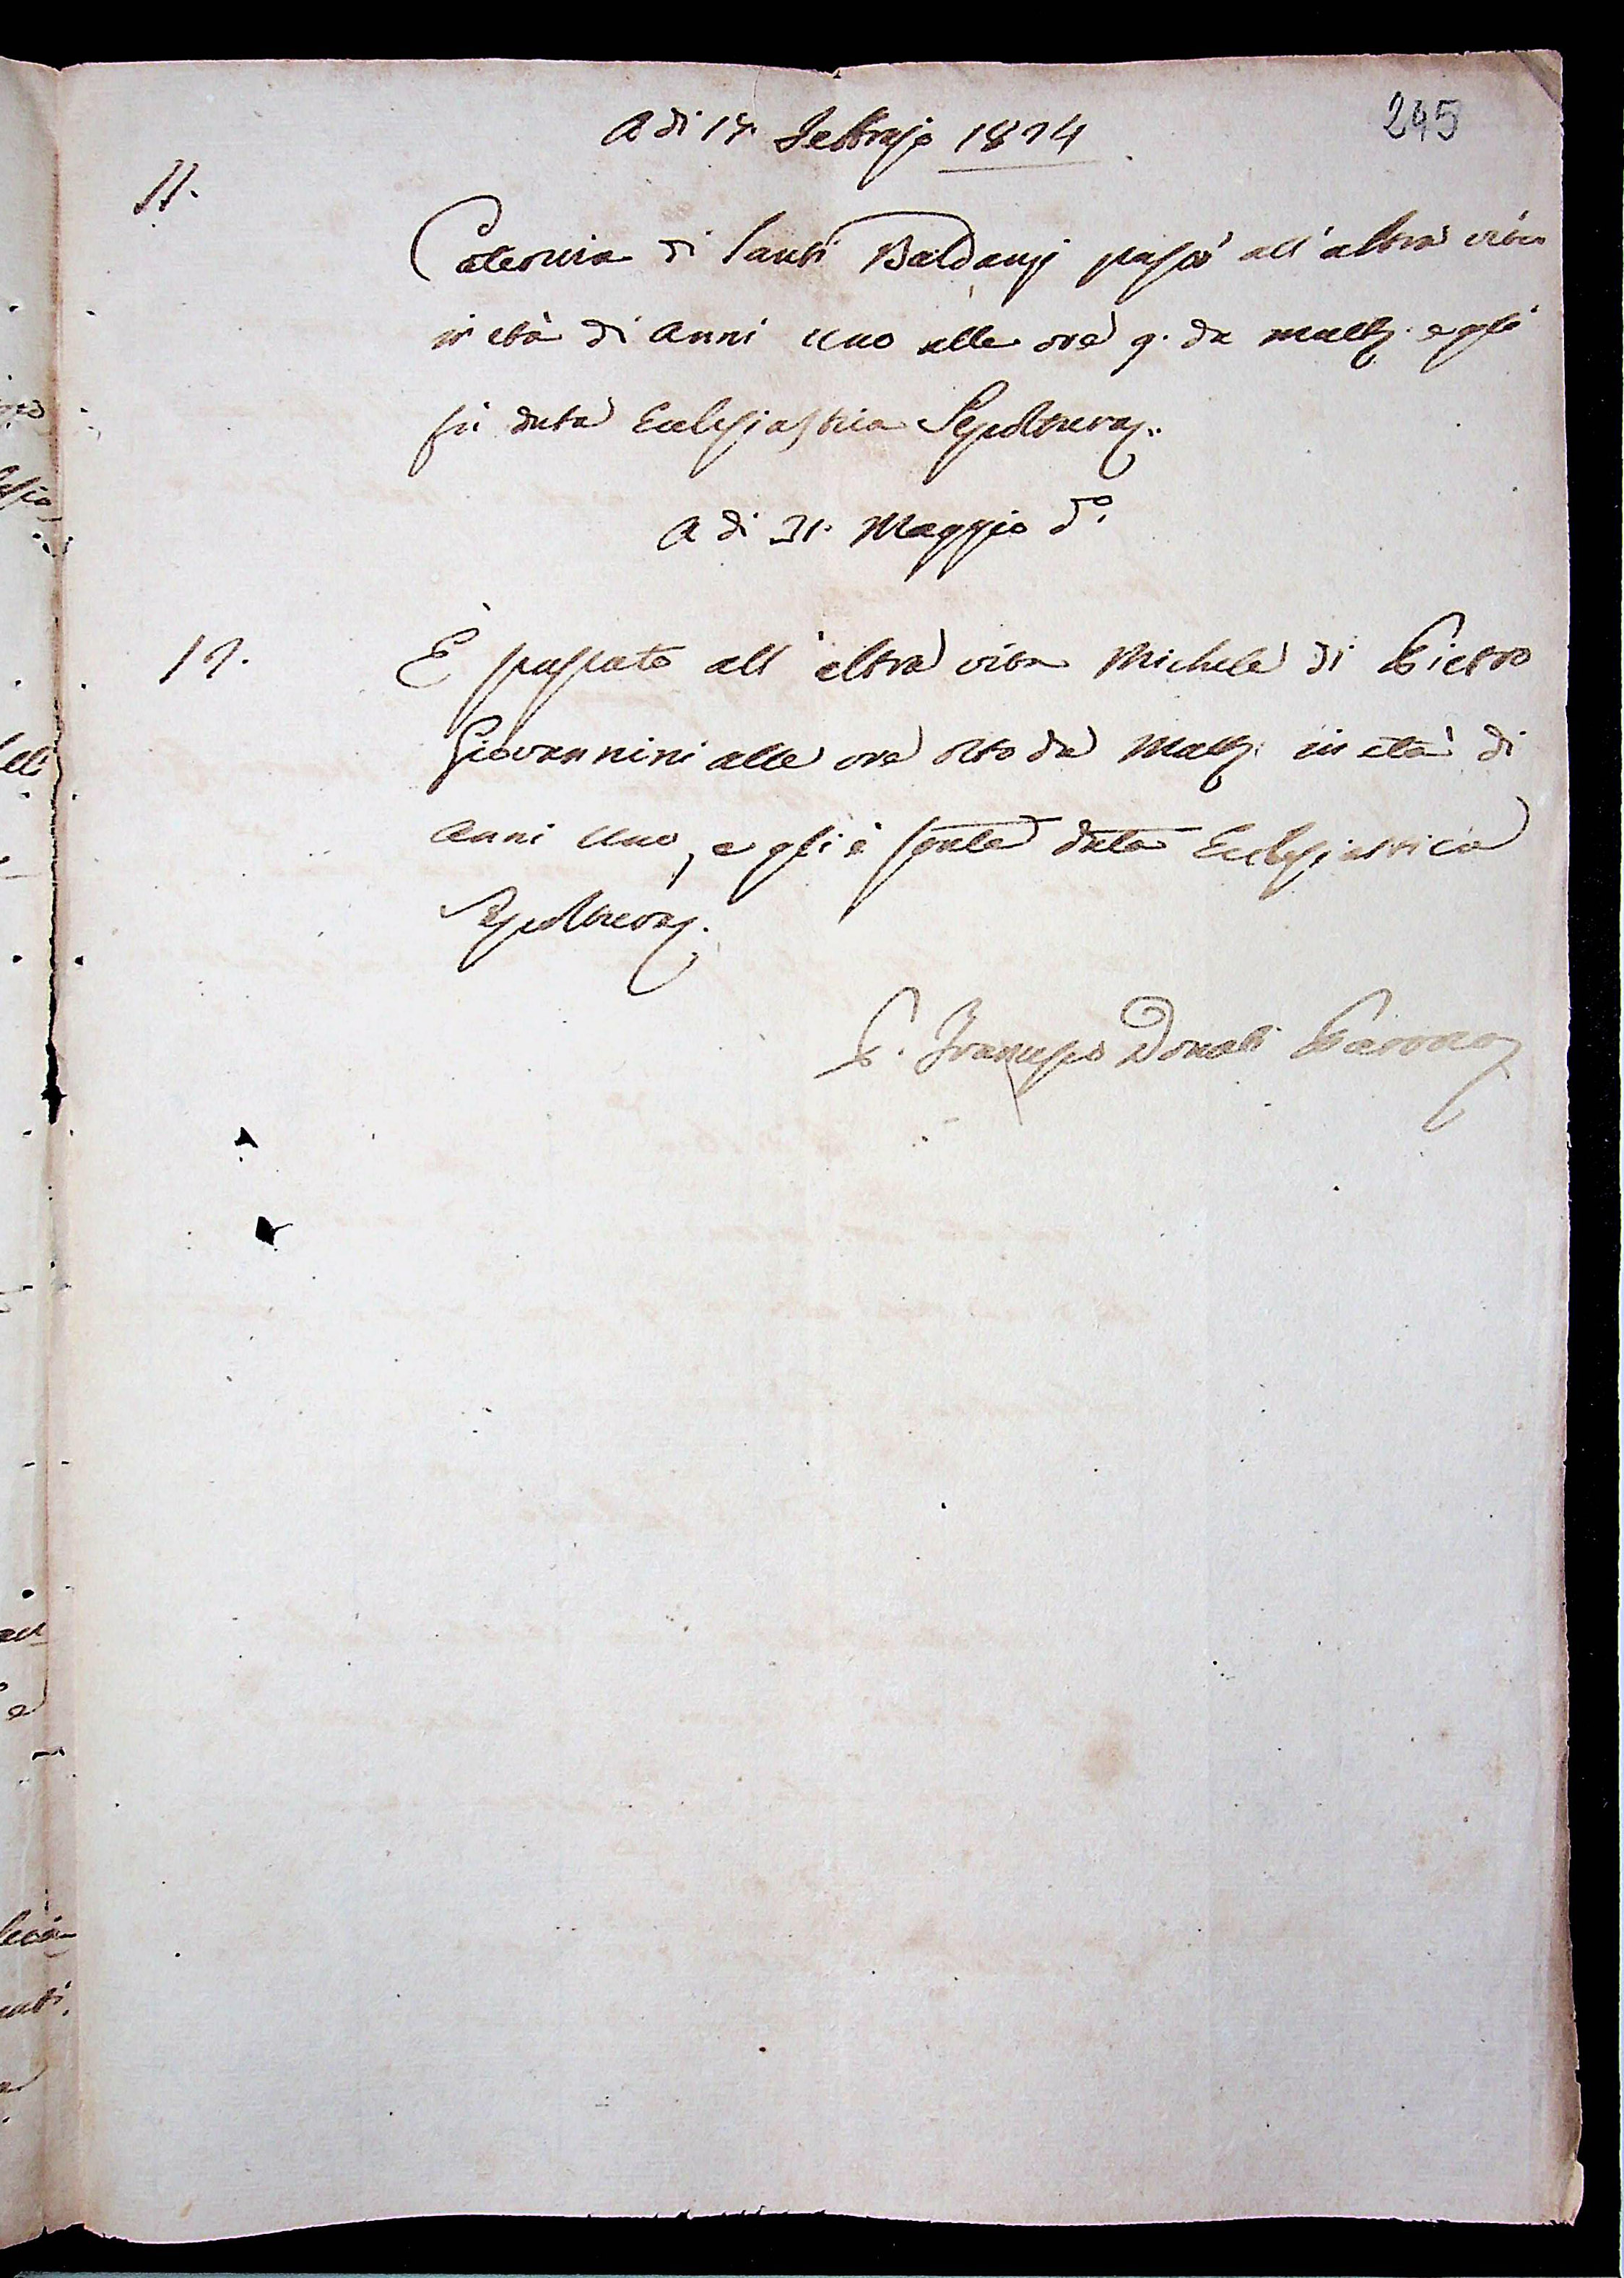 245
A dì 14. Febbrajo 1824
11.
Caterina di Santi Baldassj passò all'altra vita
in età di Anni Uno alle ore 9. da matt. e gli
fù data Ecclesiastica Sepoltura.
A dì 31. Maggio d.o
12.
È passato all'altra vita Michele di Pietro
Giovannini alle ore otto da Matt. in età di
Anni Uno, e gli è stata data Ecclesiastica
Sepoltura.
P. Francesco Donati Parroco